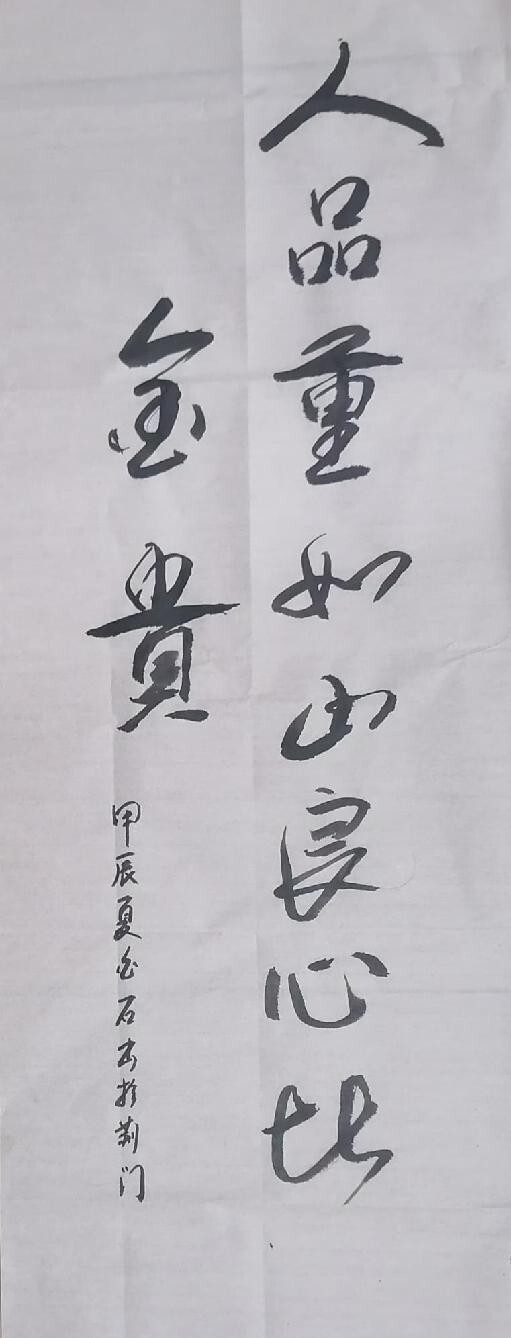 人品重如山良心比
金貴
甲辰夏金石书於荆门